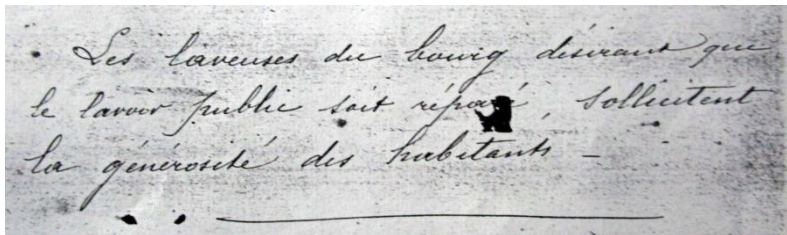 Les laveuses du bourg désirant que
le lavoir public soit réparé, sollicitent
la générosité des habitants –